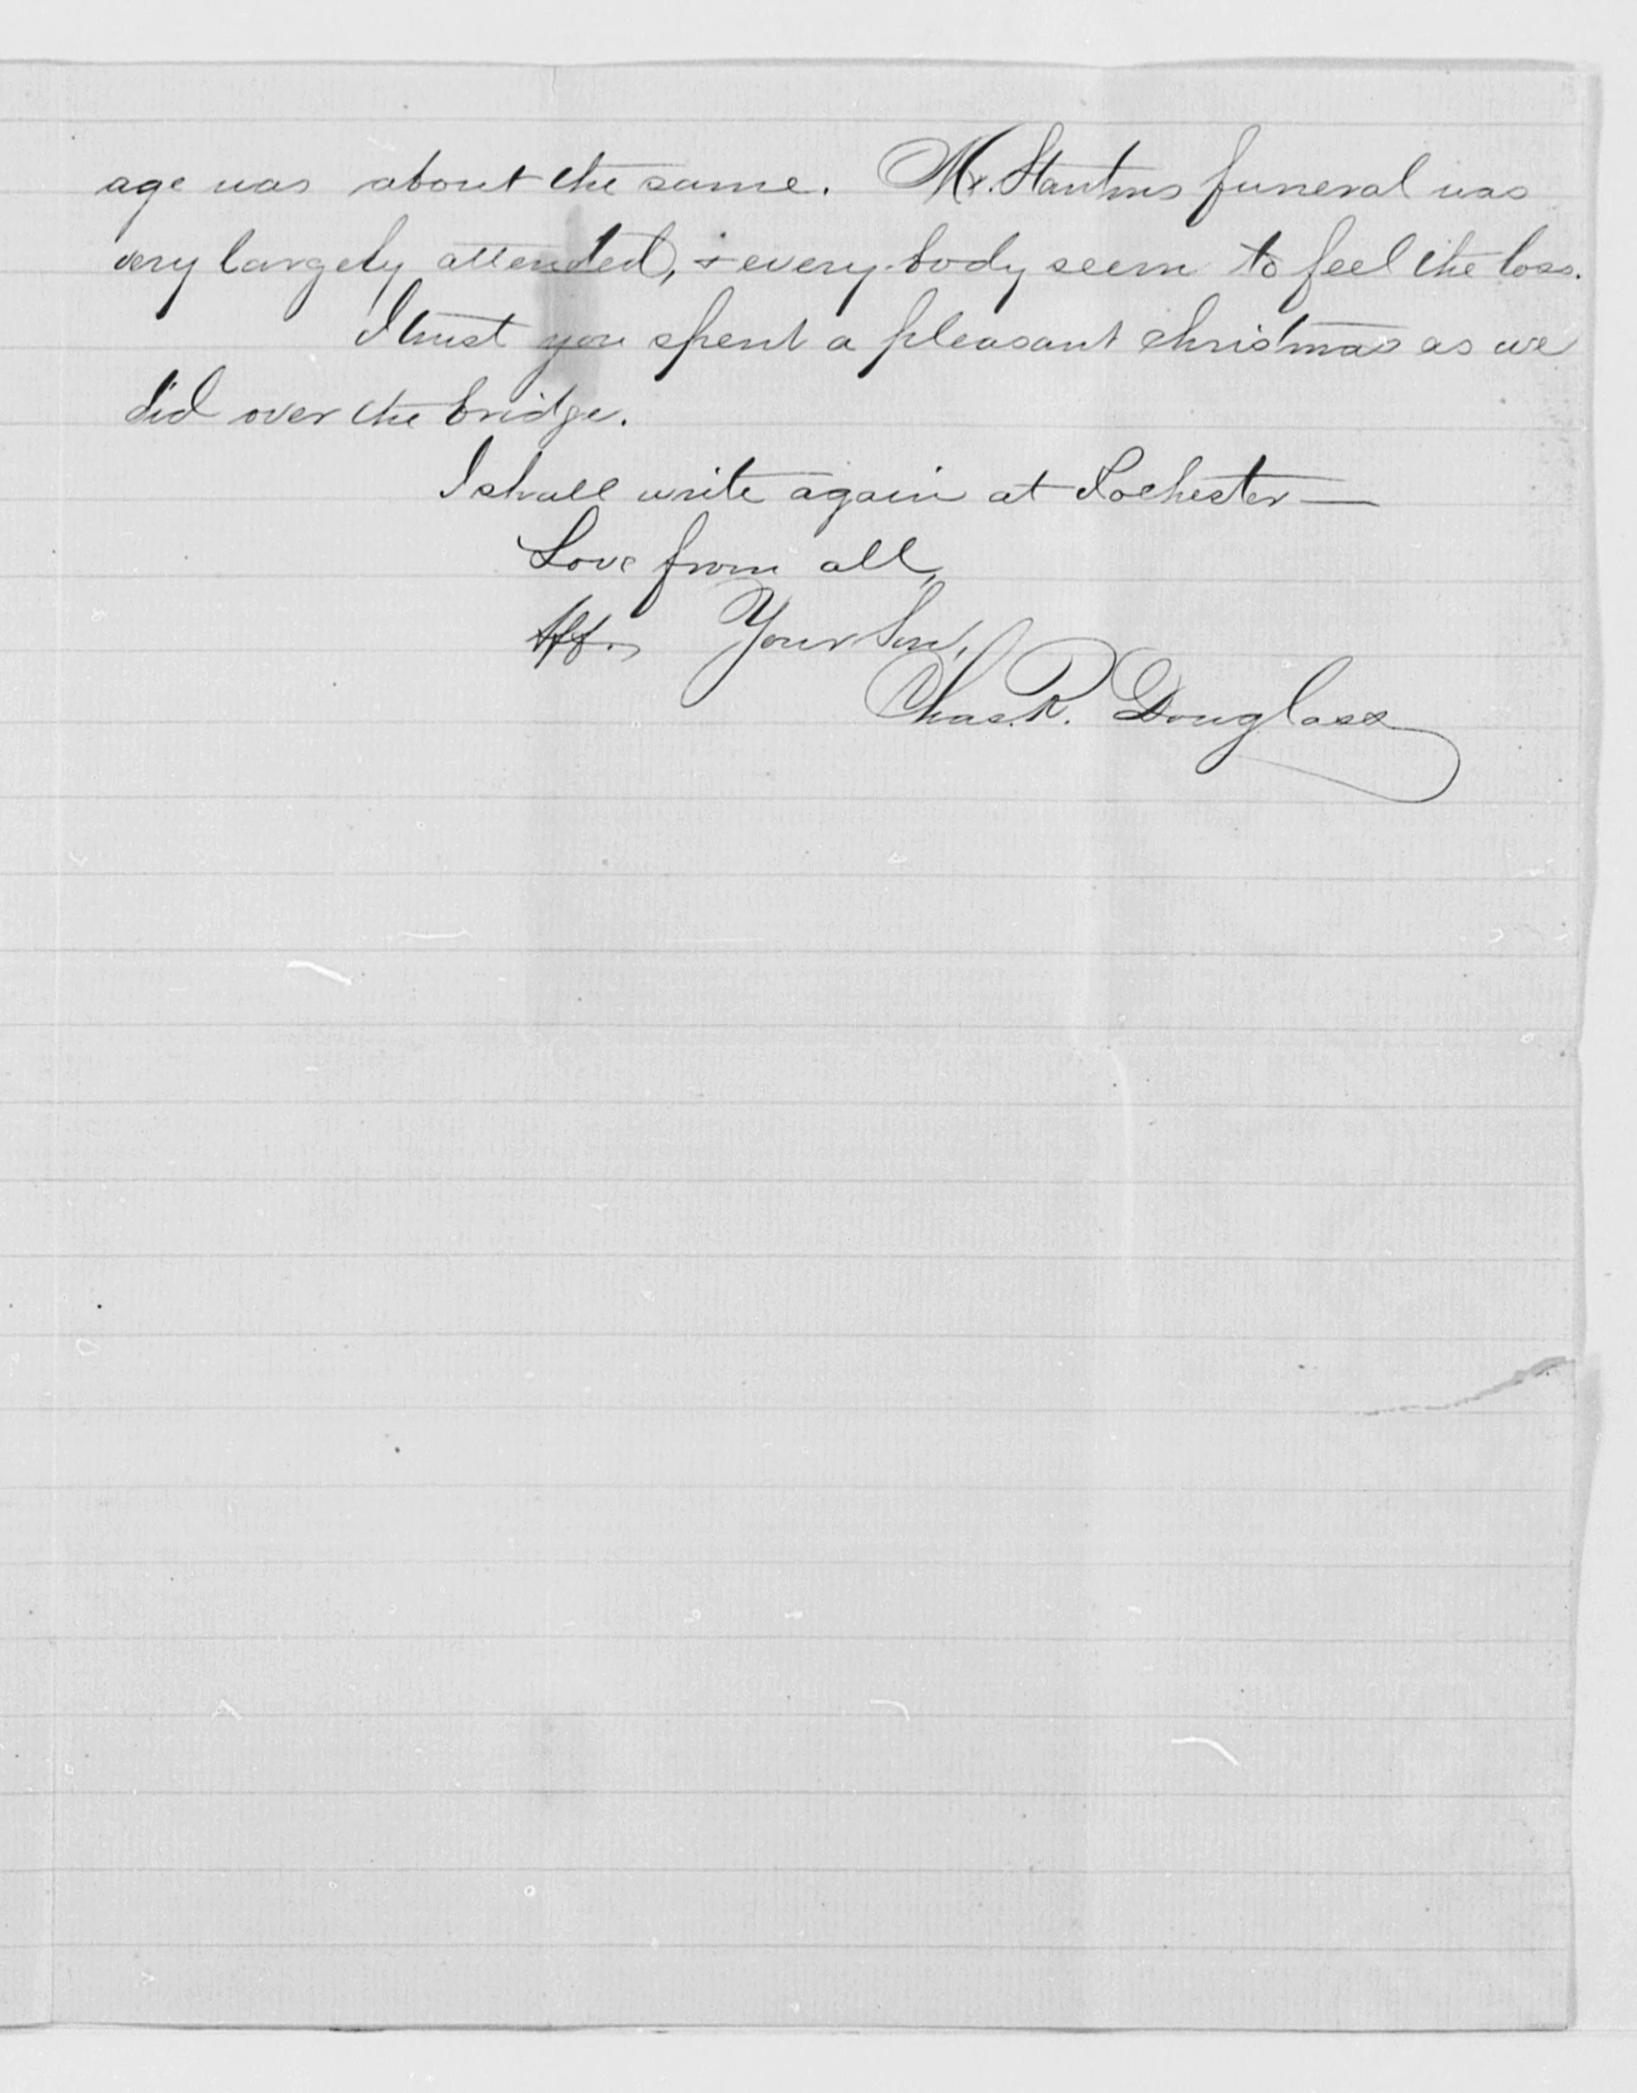 age was about the same. Mr. Stantons funeral was
very largely attended, & every-body seem to feel the loss.
I trust you spent a pleasant christmas as we
did over the bridge.
I shall write again at Rochester —
Love from all,
Aff. Your Son,
Chas. R. Douglass